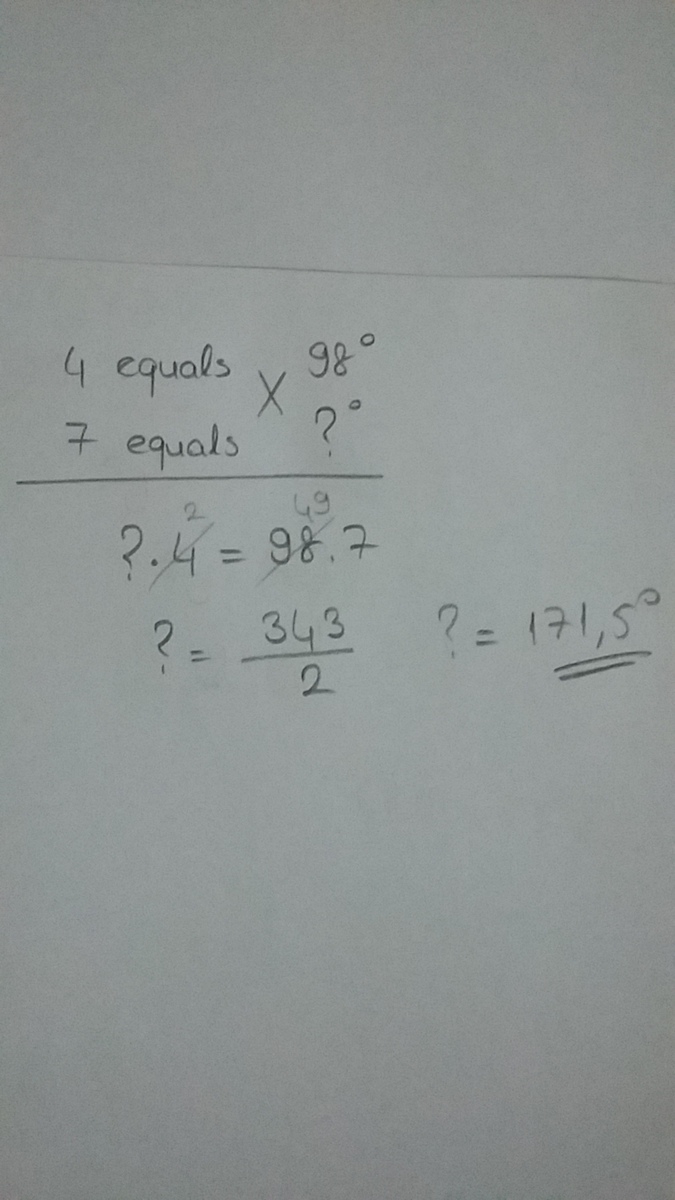 4 equals X 98°
7 equals ?°
?.4 = 98.7
2 49
? = 343/2 ? = 171,5°